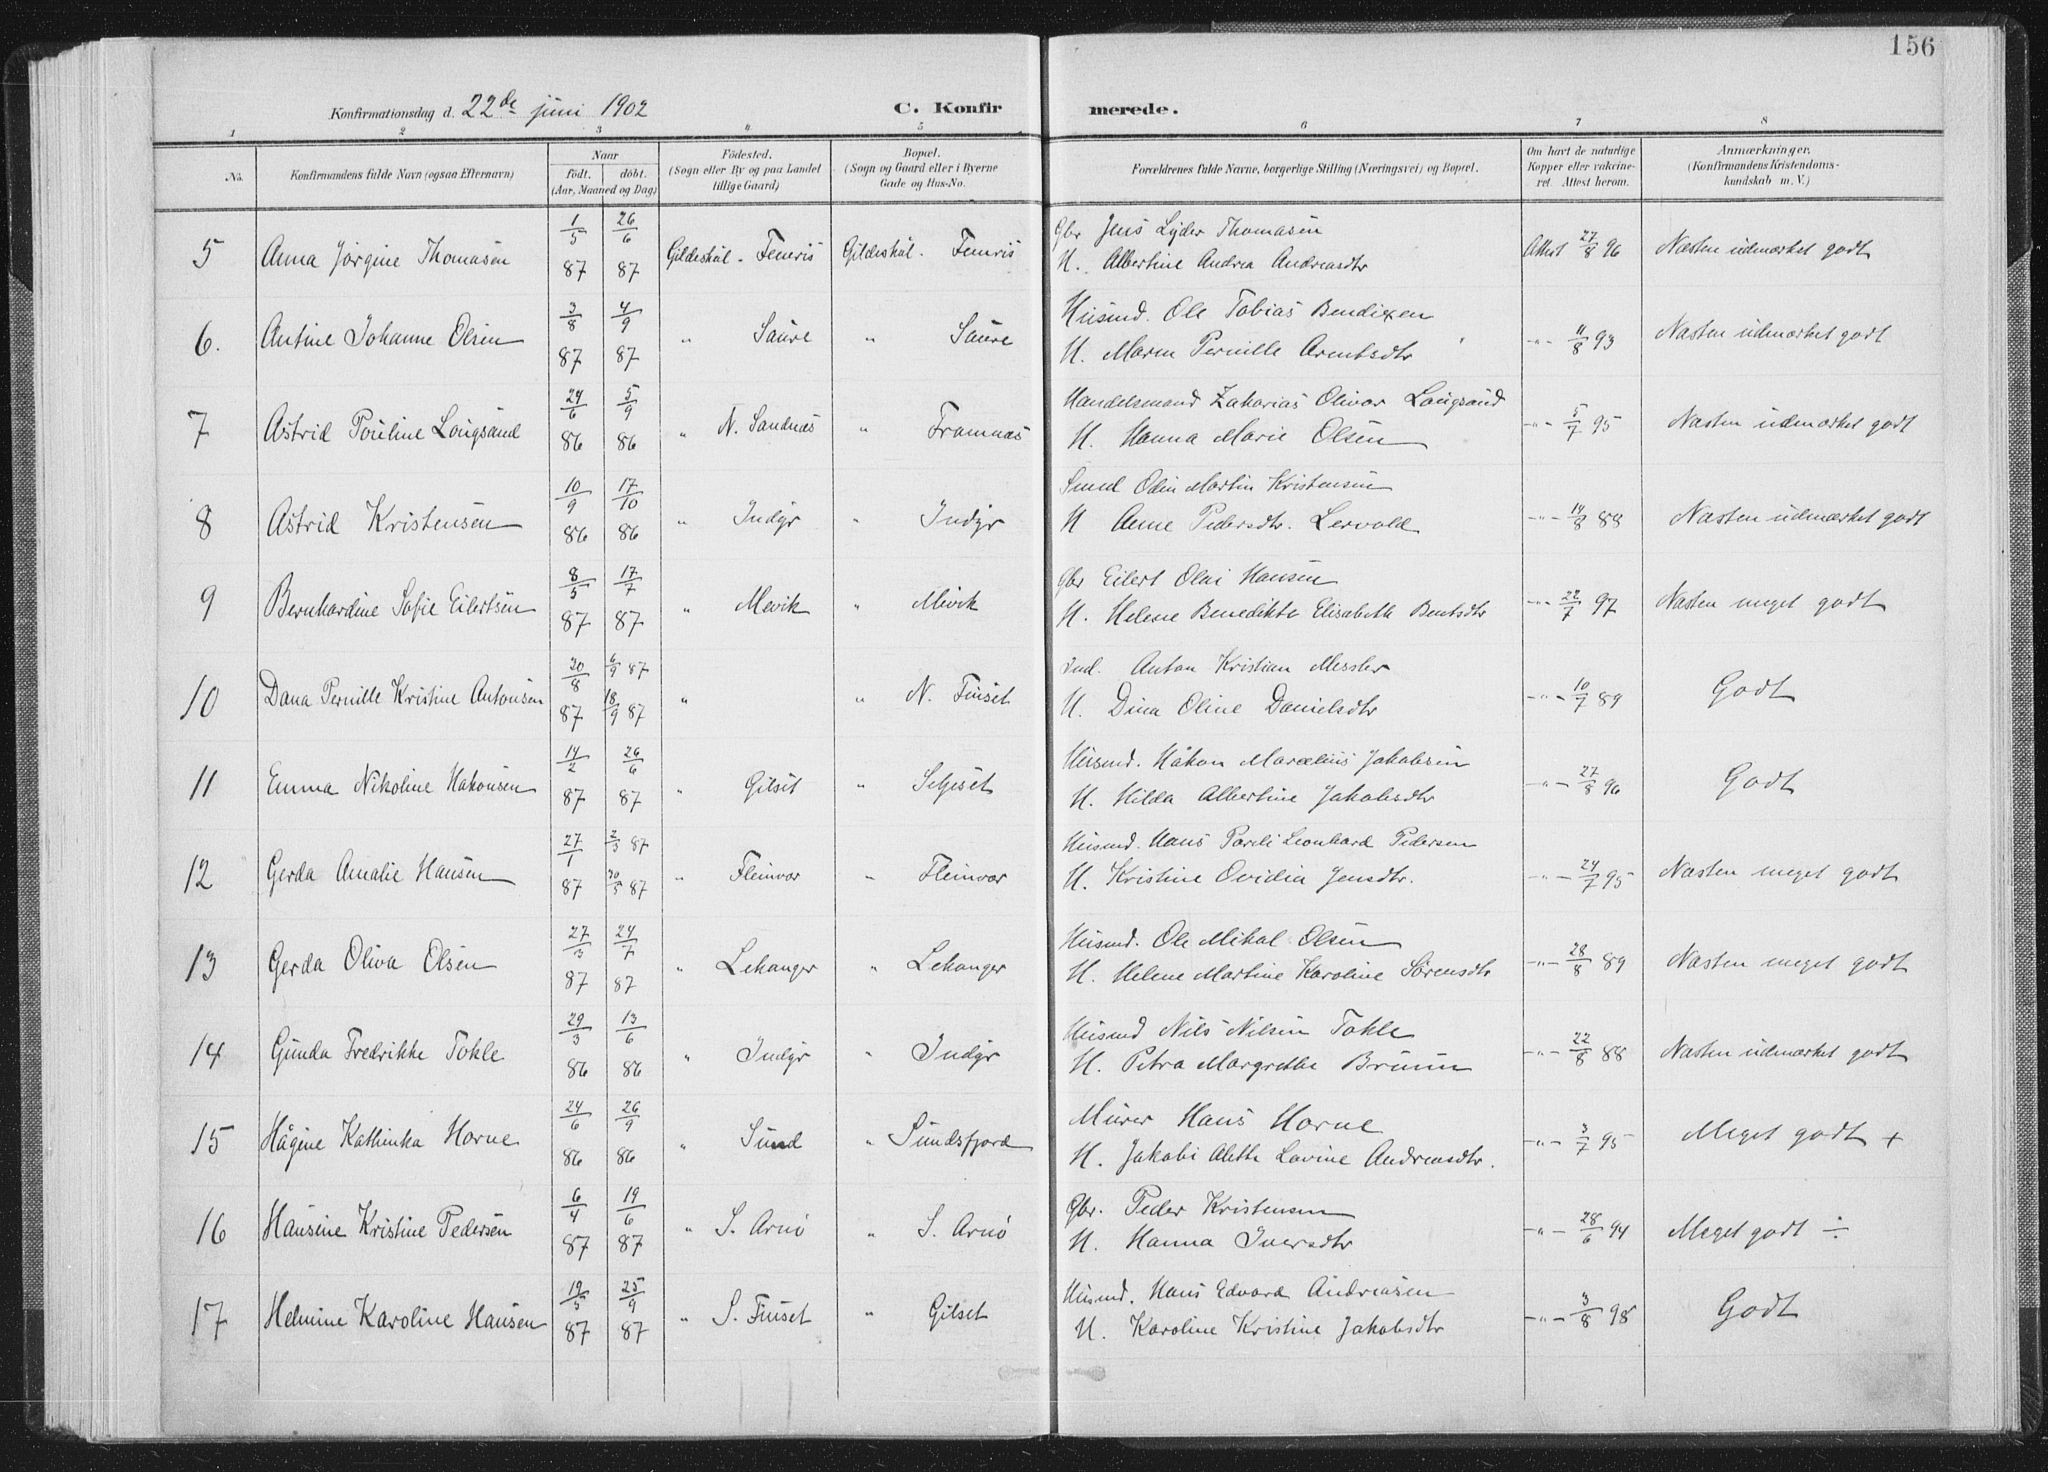 156
Konfirmationsdag d. 22de juni 1902 C. Konfir merede.
1 2 3 4 5 6 7 8
No. Konfirmandens fulde Navn (ogsaa Efternavn) Naar født. døbt. (Aar, Maaned og Dag) Fødested. (Sogn eller By og paa Landet tillige Gaard) Bopæl. (Sogn og Gaard eller i Byerne Gade og Hus-No. Forældrenes fulde Navne, borgerlige Stilling (Næringsvei) og Bopæl. Om havt de naturlige Kopper eller vakcineret. Attest herom. Anmærkninger. (Konfirmandens Kristendomskundskab m. V.)
5 Anna Jørgine Thomasen 1/5 87 26/6 87 Gildeskål - Femris Gildeskål - Femris Gbr Jens Lyder Thomasen
H. Albertine Andrea Andreasdtr Attest 27/8 96 Næsten udmærket godt
6. Antine Johanne Olsen 3/8 87 4/9 87 " Saure " Saure Husmd. Ole Tobias Bendixen
H. Maren Pernille Arentsdtr -"- 11/8 93 Næsten udmærket godt
7 Astrid Pouline Langsand 24/6 86 5/9 86 " N. Sandnæs " Framnæs Handelsmand Zakarias Olivar Langsand
H. Hanna Marie Olsen -"- 5/7 95 Næsten udmærket godt
8 Astrid Kristensen 10/9 86 17/10 86 " Indyr " Indyr Smed Odin Martin Kristensen
H Anne Pedersdtr. Lervold -"- 14/8 88 Næsten udmærket godt
9 Bernhardine Sofie Eilertsen 8/5 87 17/7 87 " Mevik " Mevik Gbr Eilert Olai Hansen
H. Helene Benedikte Elisabeth Bentsdtr -"- 22/7 97 Næsten meget godt
10 Dana Pernille Kristine Antonsen 30/8 87 6/9 87 18/9 87 " " N. Finset Ind. Anton Kristian Messler
H. Dina Oline Danielsdtr -"- 10/7 89 Godt
11 Emma Nikoline Hakonsen 14/2 87 26/6 87 " Gilset " Seljeset Husmd. Håkon Marcelius Jakobsen
H. Hilda Albertine Jakobsdtr -"- 27/8 96 Godt
12 Gerda Amalie Hansen 27/1 87 2/3 87 30/5 87 " Fleinvær " Fleinvær Husmd. Hans Pareli Leonhard Pedersen
H. Kristine Ovidia Jensdtr. -"- 24/7 95 Næsten meget godt
13 Gerda Oliva Olsen 27/3 87 24/7 87 " Lekanger " Lekanger Husmd. Ole Mikal Olsen
H. Helene Martine Karoline Sørensdtr -"- 28/8 89 Næsten meget godt
14 Gunda Fredrikke Tokle 29/3 86 13/6 86 " Indyr " Indyr Husmd Nils Nilsen Tokle
H. Petra Margrethe Bruun -"- 22/8 88 Næsten udmærket godt
15 Hågine Kathinka Horne 24/6 86 26/9 86 " Sund " Sundsfjord Murer Hans Horne
H. Jakobi Alette Lovine Andreasdtr. -"- 3/7 95 Meget godt +
16 Hansine Kristine Pedersen 6/4 87 19/6 87 " S. Arnø " S. Arnø Gbr. Peder Kristensen
H. Hanna Iversdtr -"- 28/6 94 Meget godt ÷
17 Helmine Karoline Hansen 19/5 87 25/9 87 " S. Finset " Gilset Husmd. Hans Edvard Andreasen
H. Karoline Kristine Jakobsdtr -"- 3/8 98 Godt